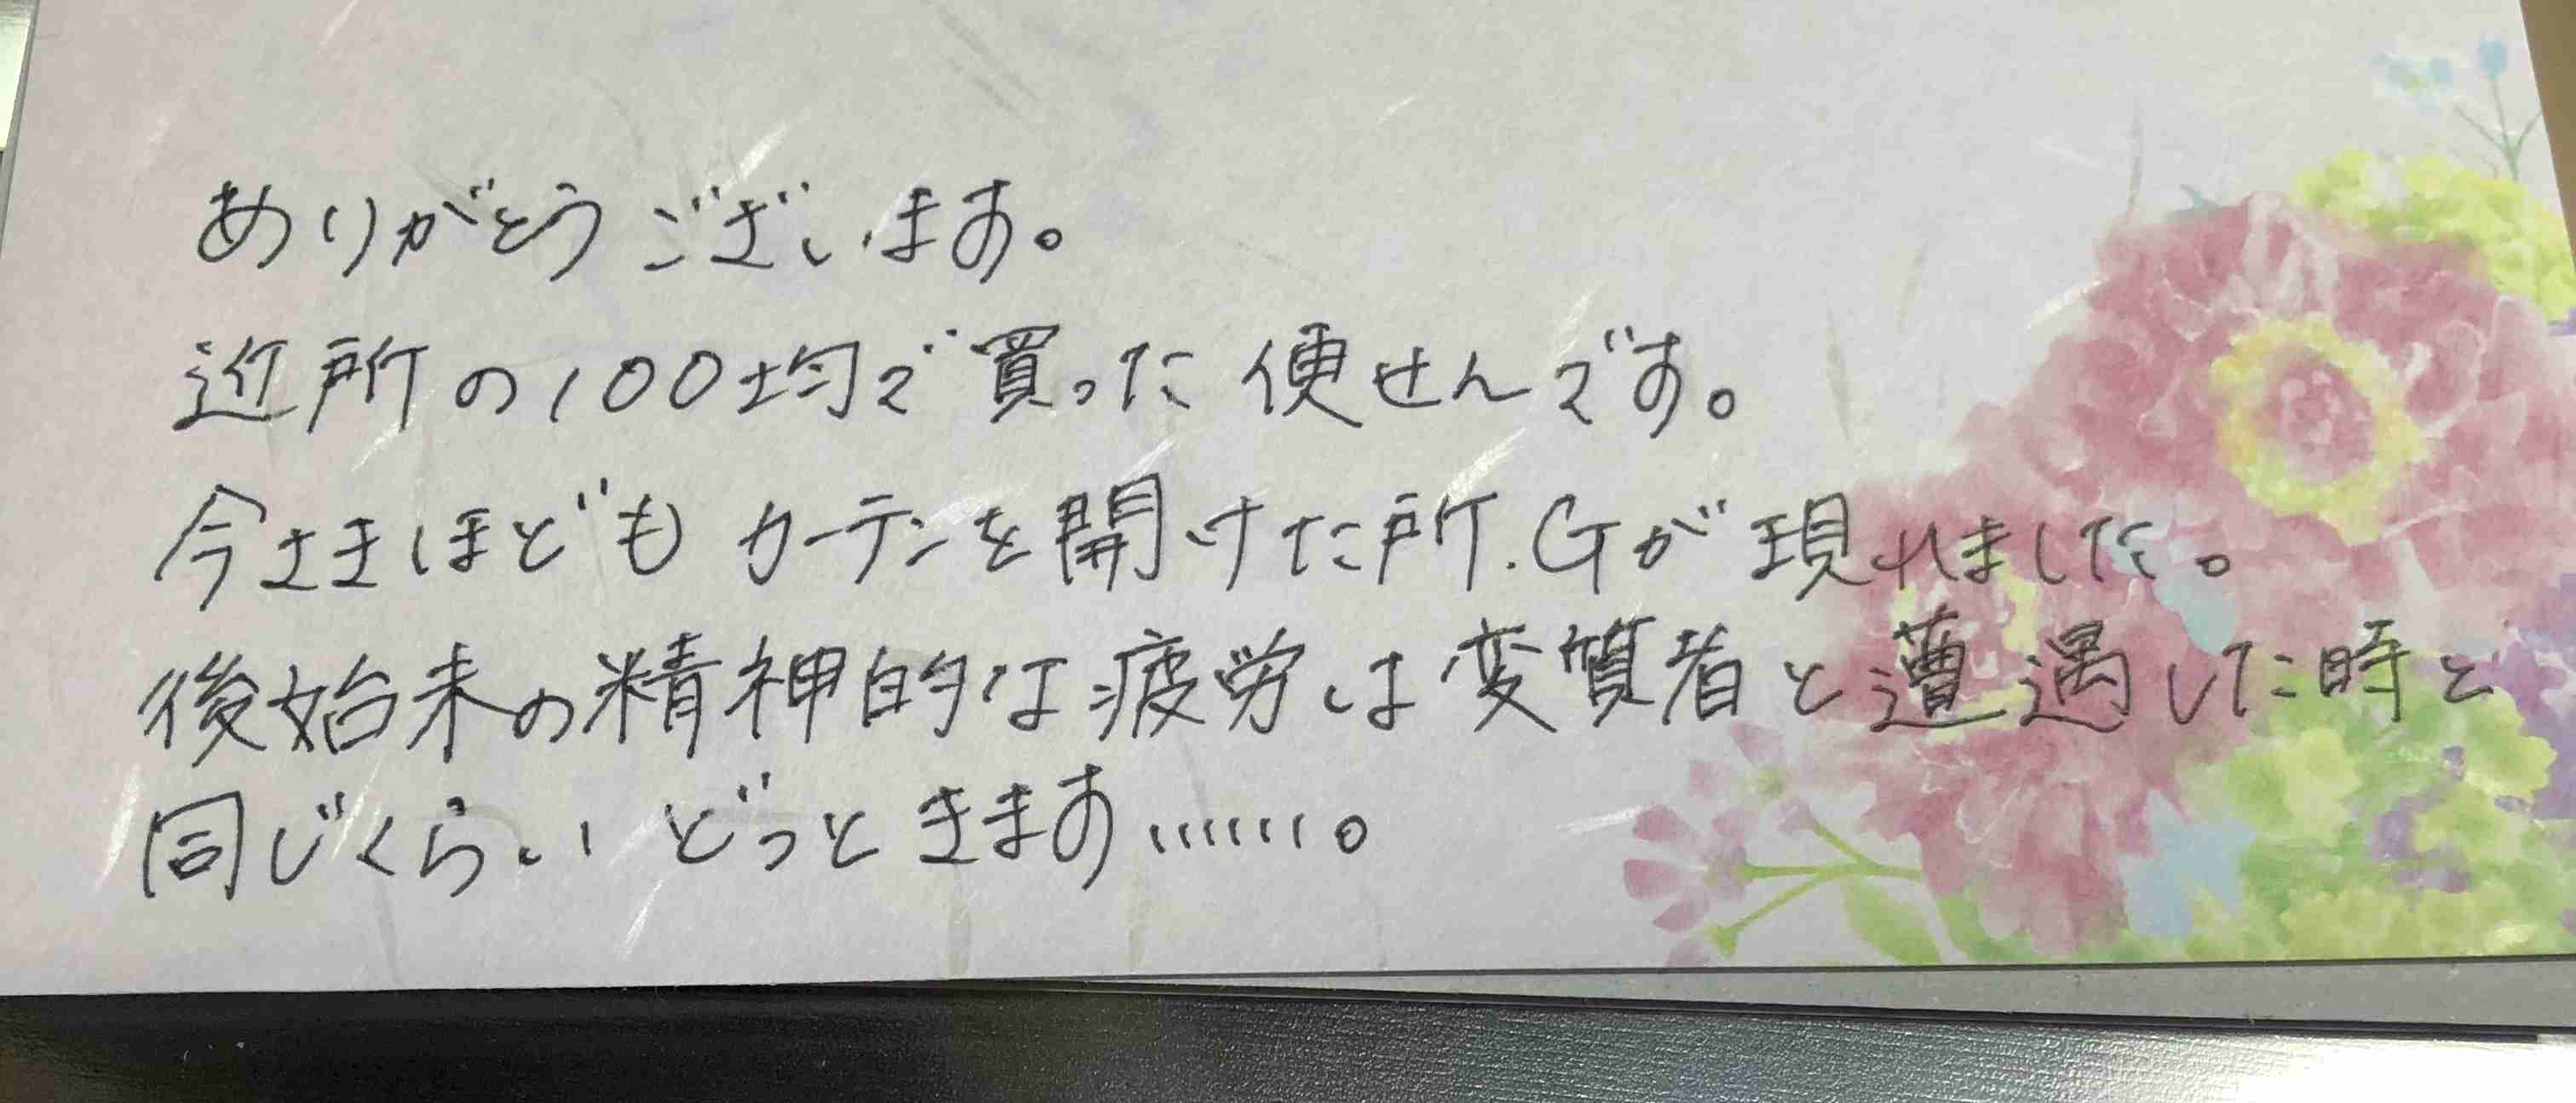 ありがとうございます。
近所の100均で買った便せんです。
今さきほどもカーテンを開けた所、Gが現れました。
後始末の精神的な疲労は変質者と遭遇した時と
同じくらいどっときます……。